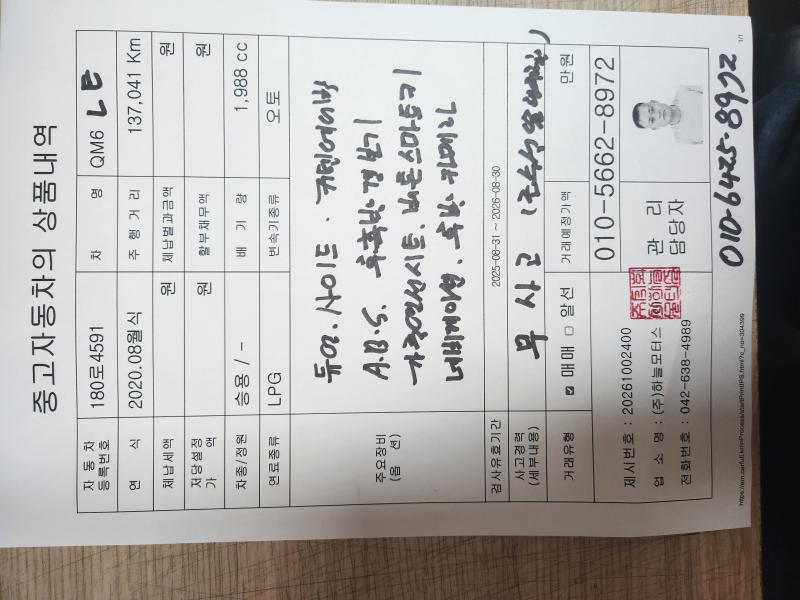 중고자동차의 상품내역
자동차 등록번호 180로4591 차 명 QM6 LE
연 식 2020.08월식 주 행 거 리 137,041 Km
체납세액 원 체납벌과금액 원
저당설정 가 액 원 할부채무액 원
차종/정원 승용 / - 배 기 량 1,988 cc
연료종류 LPG 변속기종류 오토
주요장비 (옵 션)
듀얼.사이드.커텐에어백
A.B.S. 후측방경보기
가죽열선시트. 버튼스마트키
네비게이션. 후방카메라
검사유효기간 2025-08-31 ~ 2026-08-30
사고경력 (세부내용) 무사고
거래유형 ☑ 매매 □ 알선 거래예정가액 만원
제시번호 : 20261002400
업 소 명 : (주)하늘모터스
전화번호 : 042-638-4989
관 리 담당자
010-5662-8972
010-6425-8972
1/1